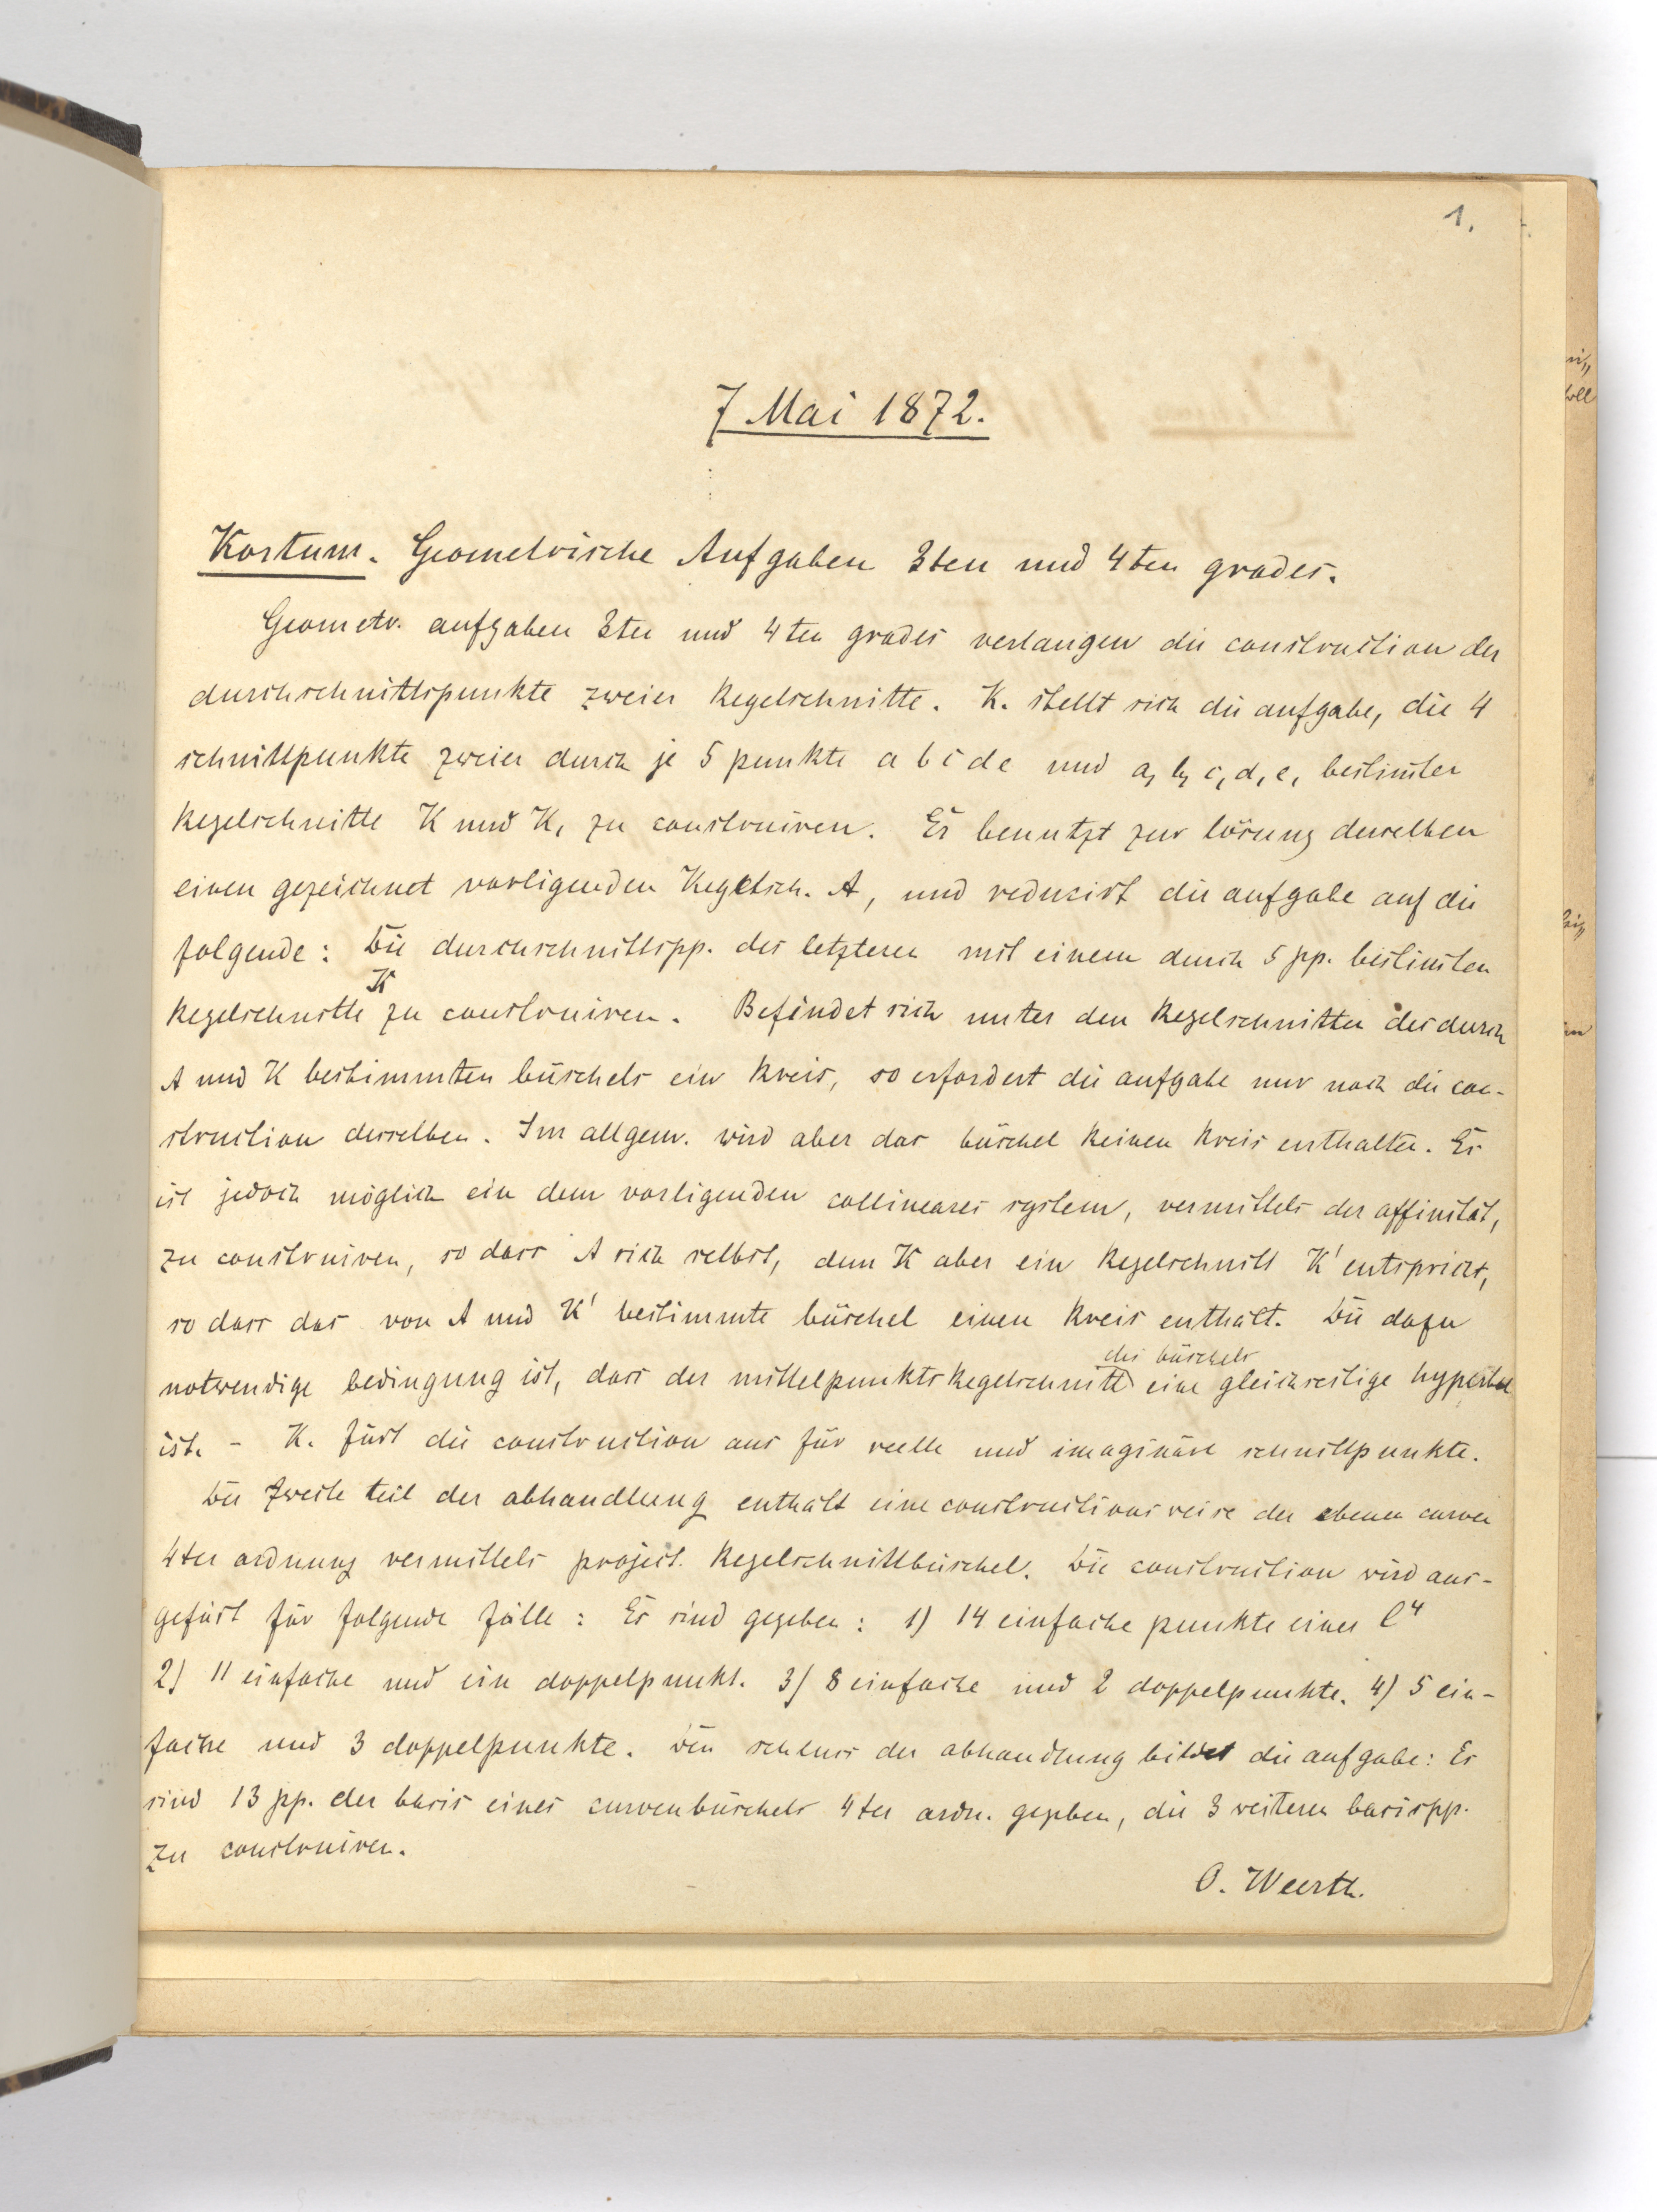 1.
7 Mai 1872.
Kortum. Geometrische Aufgaben 3ten und 4ten grades.
Geometr. aufgaben 3ten und 4ten grades verlangen die construction der
durchschnittspunkte zweier kegelschnitte. K. stellt sich die aufgabe, die 4
schnittpunkte zweier durch je 5 punkte a b c d e und a, b, c, d, e, bestim̄ter
kegelschnitte K und K, zu construiren. Er benutzt zur lösung derselben
einen gezeichnet vorligenden Kegelsch. A, und reducirt die aufgabe auf die
folgende: Die durchschnittspp. des letzteren mit einem durch 5 pp. bestim̄ten
K
kegelschnitte zu construiren. Befindet sich unter den kegelschnitten des durch
A und K bestimmten büschels ein kreis, so erfordert die aufgabe nur noch die con-
struction desselben. Im allgem. wird aber das büschel keinen kreis enthalten. Es
ist jedoch möglich ein dem vorligenden collineares system, vermittels der affinität,
zu construiren, so dass A sich selbst, dem K aber ein kegelschnitt K' entspricht,
so dass das von A und K' bestimmte büschel einen kreis enthält. Die dazu
des büschels
notwendige bedingung ist, dass der mittelpunktskegelschnitt eine gleichseitige hyperbel
ist. - K. fürt die construction aus für reelle und imaginäre schnittpunkte.
Der zweite teil der abhandlung enthält eine constructionsweise der ebenen curven
4ter ordnung vermittels project. kegelschnittbüschel. Die construction wird aus-
gefürt für folgende fälle: Es sind gegeben: 1) 14 einfache punkte einer C⁴
2) 11 einfache und ein doppelpunkt. 3) 8 einfache und 2 doppelpunkte. 4) 5 ein-
fache und 3 doppelpunkte. Den schluss der abhandlung bildet die aufgabe: Es
sind 13 pp. der basis eines curvenbüschels 4ter ordn. gegeben, die 3 weiteren basispp.
zu construiren.
O. Weerth.